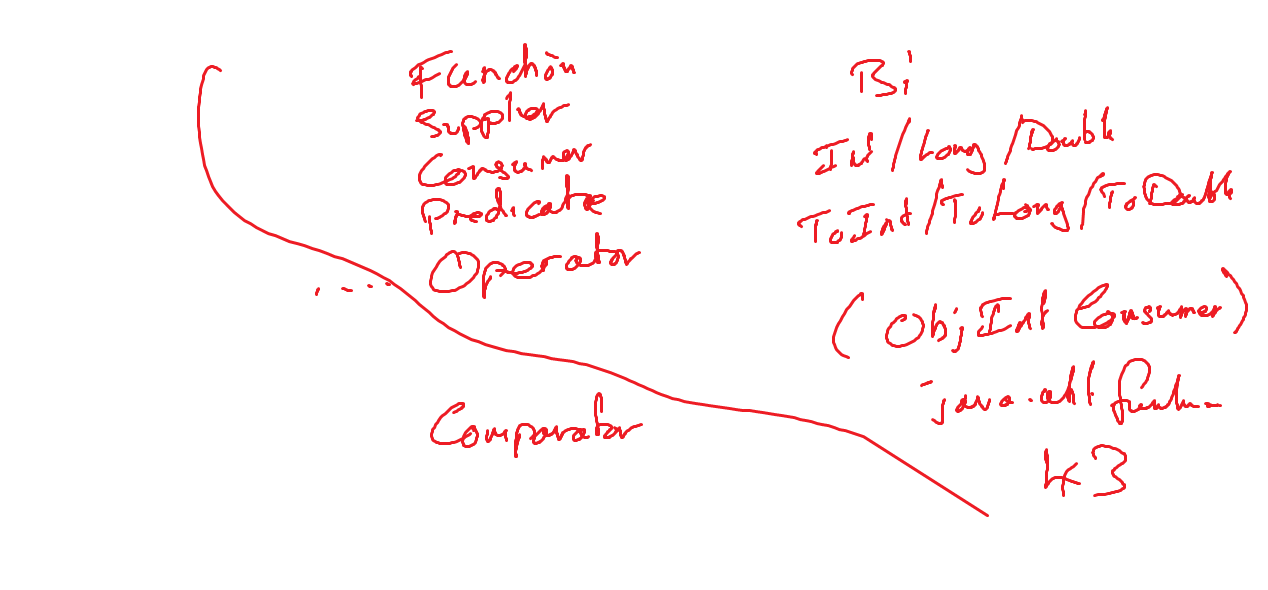 Function
Supplier
Consumer
Predicate
Operator
Comparator
Bi
Int / Long / Double
ToInt / ToLong / ToDouble
( ObjInt Consumer )
43